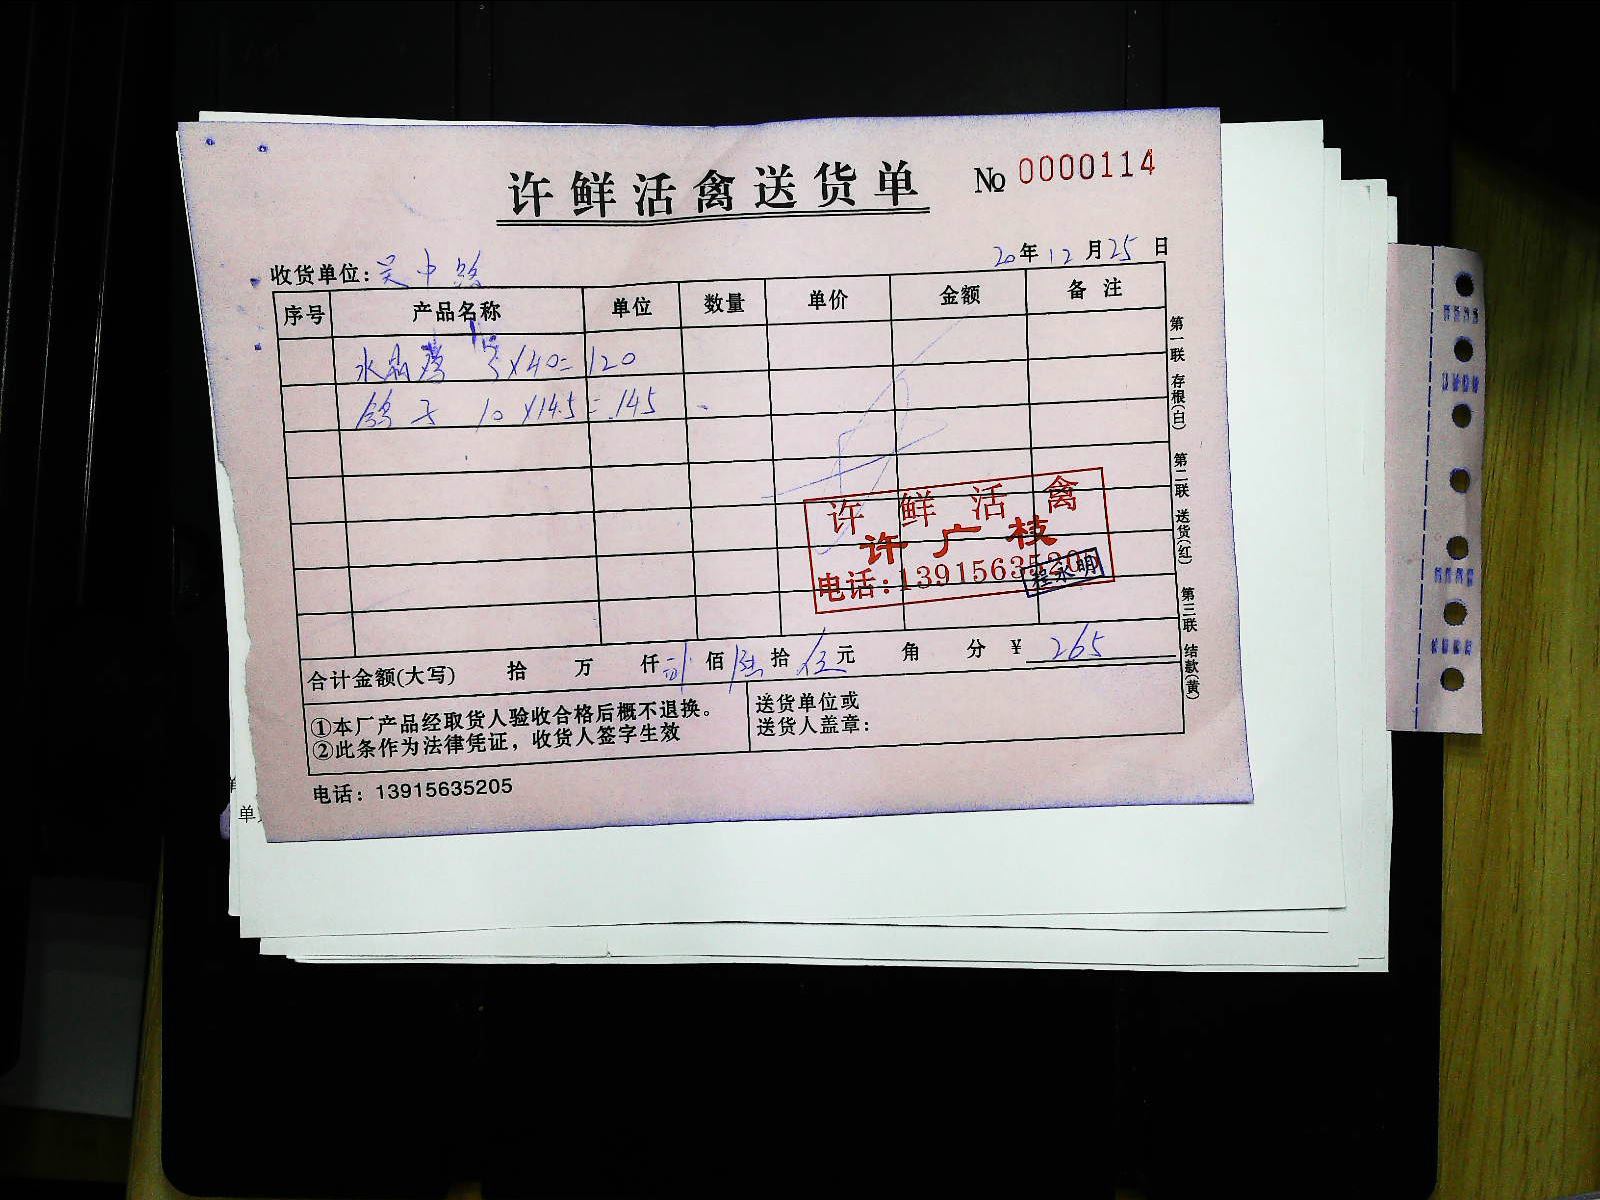 许鲜活禽送货单 № 0000114
收货单位:吴中路 20年12月25日
序号 产品名称 单位 数量 单价 金额 备注
水晶鸡 3×40=120
鸽子 10×14.5=145
许鲜活禽
许广枝
电话:13915635205
程永明
合计金额(大写) 拾 万 仟 贰佰 陆拾 伍元 角 分 ¥ 265
①本厂产品经取货人验收合格后概不退换。
②此条作为法律凭证，收货人签字生效
送货单位或
送货人盖章:
电话: 13915635205
第一联 存根(白) 第二联 送货(红) 第三联 结款(黄)